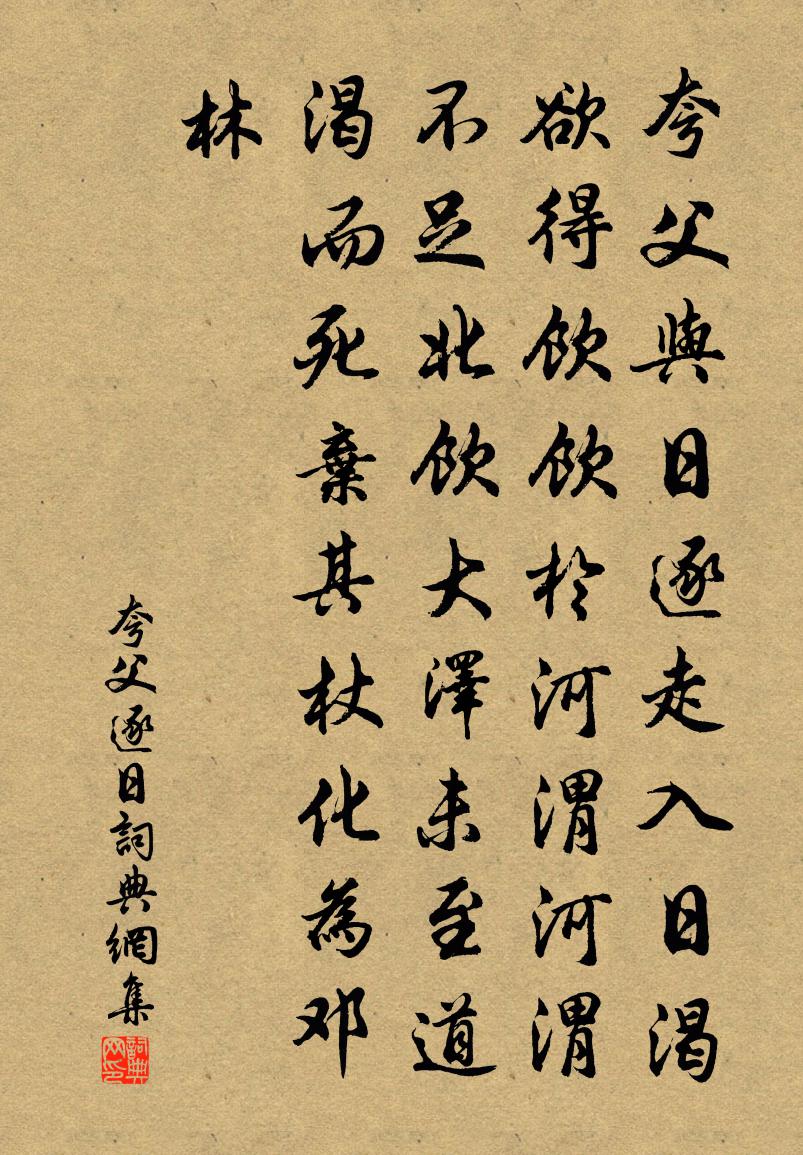 夸父與日逐走入日渴
欲得飲飲於河渭河渭
不足北飲大澤未至道
渴而死棄其杖化為邓
林
夸父逐日詞典網集
詞典网印